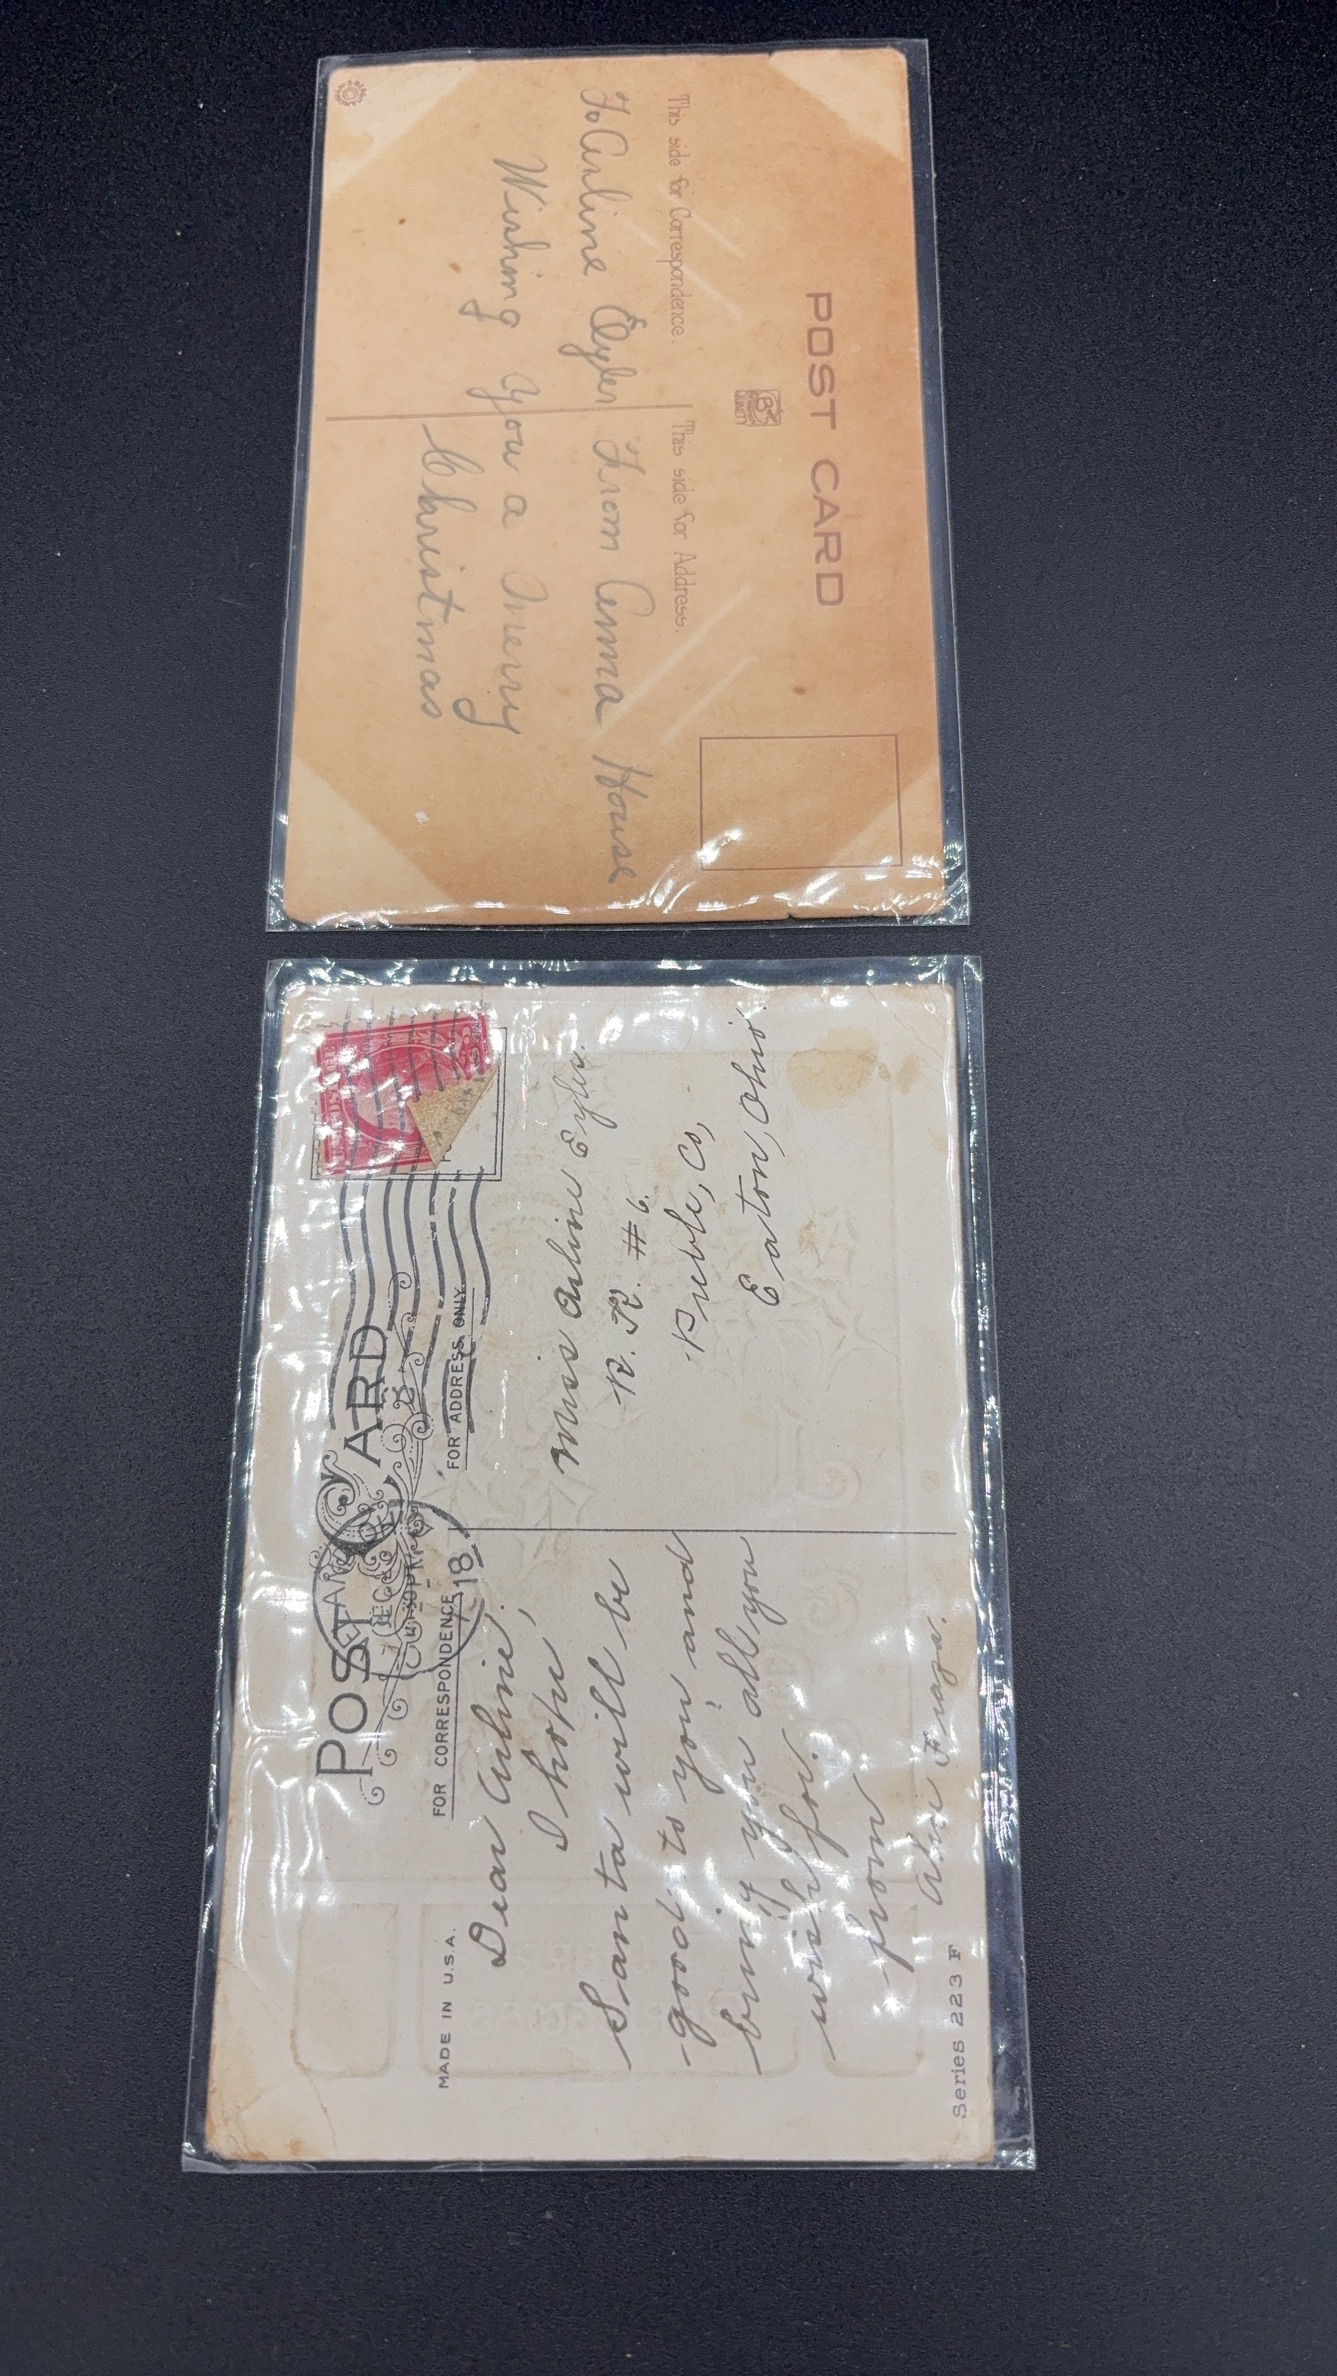 POST CARD
This side for Correspondence.
This side for Address.
To Arline Eyler From Anna House
Wishing you a Merry
Christmas
POST CARD
FOR CORRESPONDENCE
FOR ADDRESS ONLY.
MADE IN U.S.A.
DEC
1918
Dear Arline,
I hope,
Santa will be
good to you and
bring you all you
wish for.
from
Series 223 F
Miss Arline Eyler.
R. R. # 6.
Preble, Co,
Eaton, Ohio.